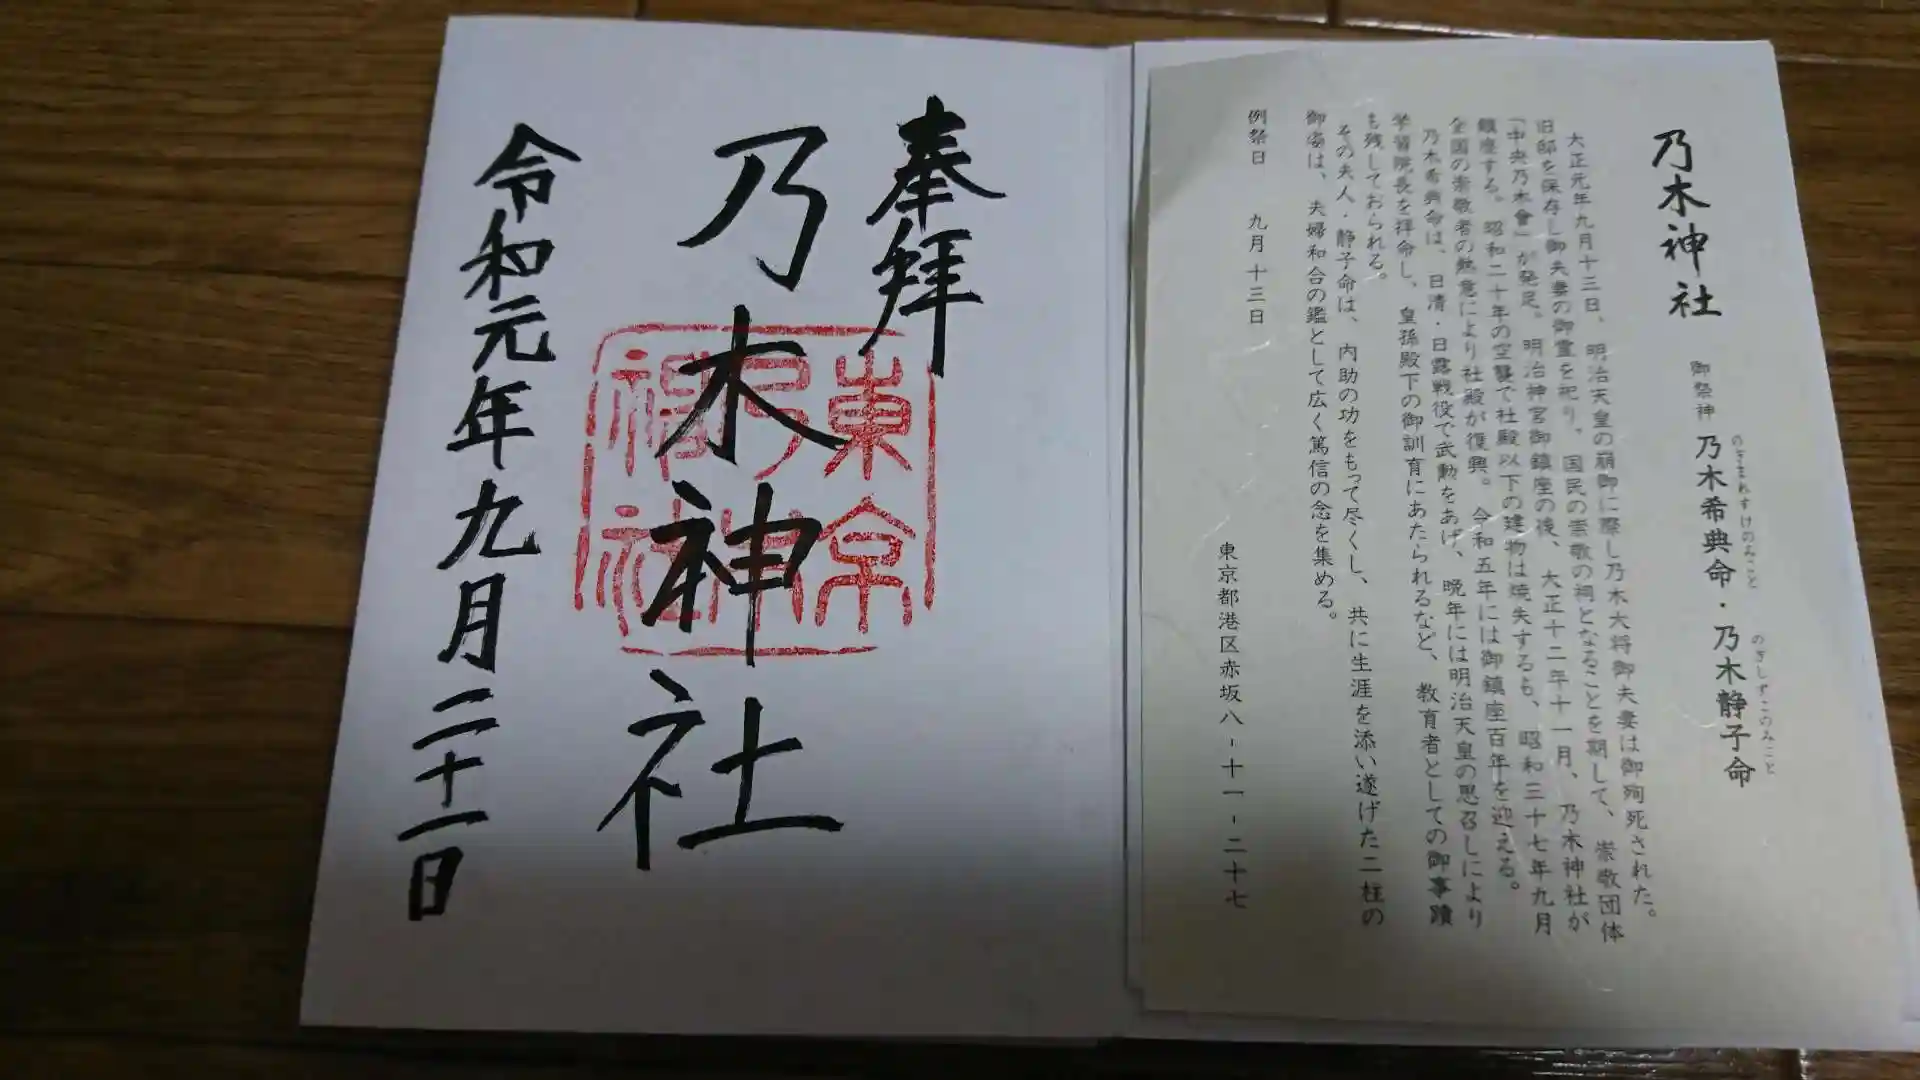 乃木神社
御祭神 乃木希典命・乃木静子命
のぎまれすけのみこと
のぎしずこのみこと
大正元年九月十三日、明治天皇の崩御に際し乃木大将御夫妻は御殉死された。
旧邸を保存し御夫妻の御霊を祀り、国民の崇敬の祠となることを期して、崇敬団体
「中央乃木會」が発足。明治神宮御鎮座の後、大正十二年十一月、乃木神社が
鎮座する。昭和二十年の空襲で社殿以下の建物は焼失するも、昭和三十七年九月
全国の崇敬者の熱意により社殿が復興。令和五年には御鎮座百年を迎える。
乃木希典命は、日清・日露戦役で武勲をあげ、晩年には明治天皇の思召しにより
学習院長を拝命し、皇孫殿下の御訓育にあたられるなど、教育者としての御事蹟
も残しておられる。
その夫人・静子命は、内助の功をもって尽くし、共に生涯を添い遂げた二柱の
御姿は、夫婦和合の鑑として広く篤信の念を集める。
例祭日 九月十三日
東京都港区赤坂八-十一-二十七
奉拜
乃木神社
東京
乃神
社
令和元年九月二十一日